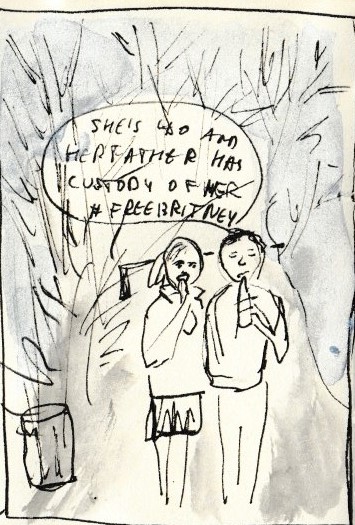 SHE'S 40 AND
HER FATHER HAS
CUSTODY OF HER
# FREEBRITNEY